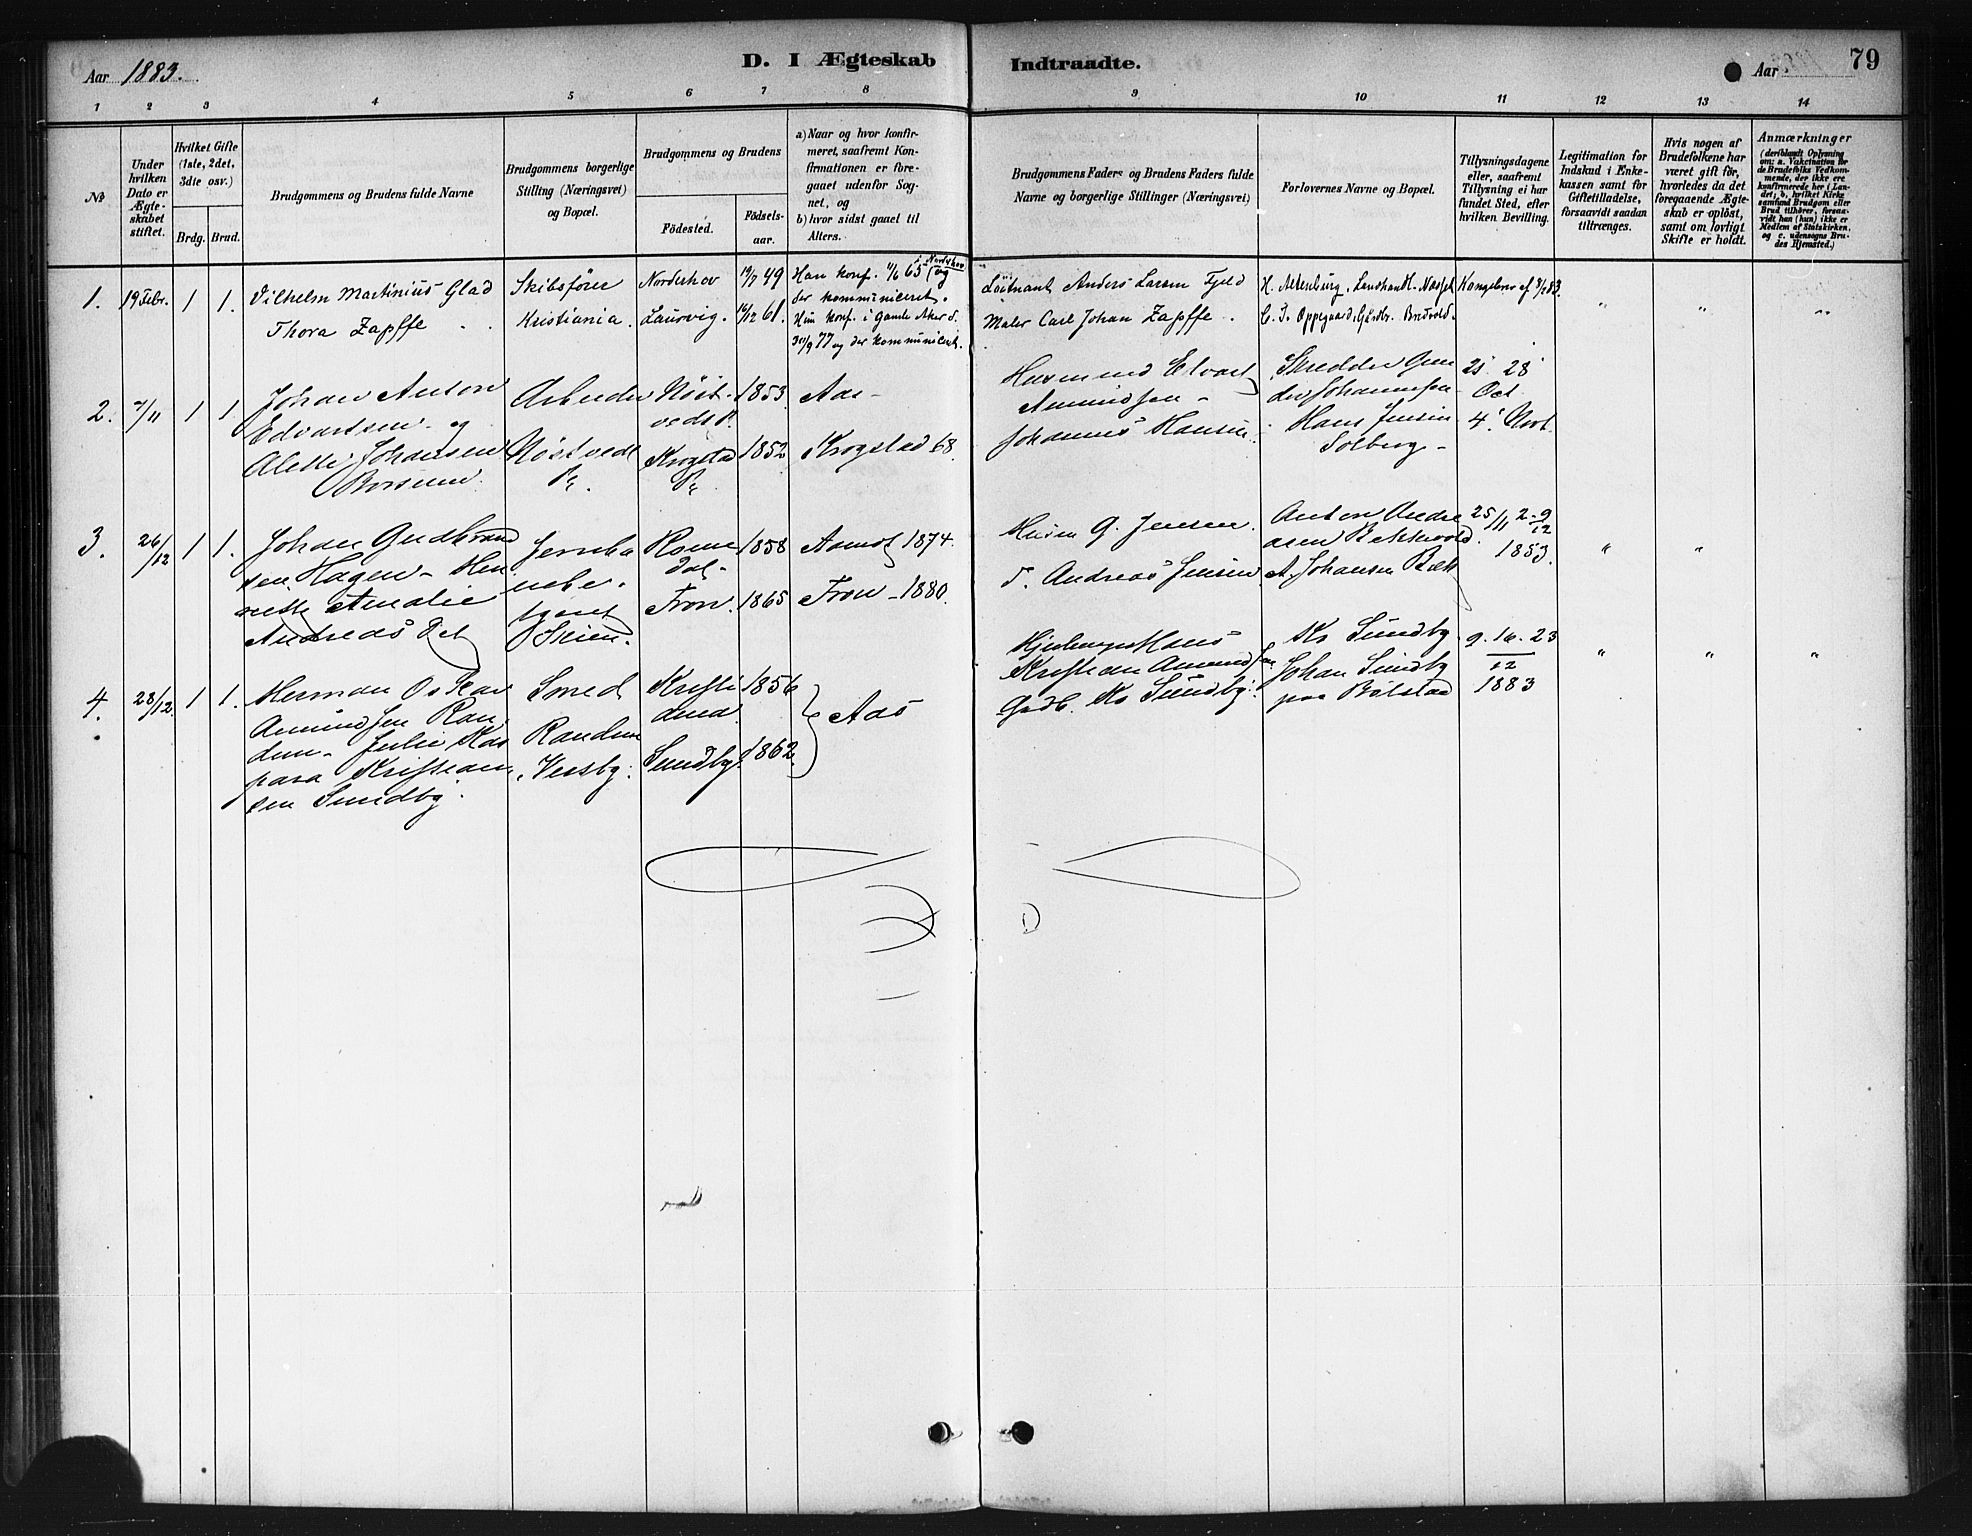 Aar 1883.
D. I Ægteskab
Indtraadte.
Aar
79
1 2 3 4 5 6 7 8
9 10 11 12 13 14
№
Under hvilken Dato er Ægteskabet stiftet.
Hvilket Gifte (1ste, 2det, 3die osv.)
Brdg. Brud.
Brudgommens og Brudens fulde Navne
Brudgommens borgerlige Stilling (Næringsvei) og Bopæl.
Brudgommens og Brudens
Födested.
Födsels-aar.
a) Naar og hvor konfirmeret, saafremt Konfirmationen er foregaaet udenfor Sognet, og
b) hvor sidst gaaet til Alters.
Brudgommens Faders og Brudens Faders fulde Navne og borgerlige Stillinger (Næringsvei)
Forlovernes Navne og Bopæl.
Tillysningsdagene eller, saafremt Tillysning ei har fundet Sted, efter hvilken Bevilling.
Legitimation for Indskud i Enkekassen samt for Giftetilladelse, forsaavidt saadan tiltrænges.
Hvis nogen af Brudefolkene har været gift för, hvorledes da det foregaaende Ægteskab er oplöst, samt om lovligt Skifte er holdt.
Anmærkninger
(deriblandt Oplysning om: a. Vakcination for de Brudefolks Vedkommende, der ikke ere konfirmerede her i Landet; b. hvilket Kirkesamfund Brudgom eller Brud tilhörer, forsaavidt han (hun) ikke er Medlem af Statskirken, og c. udensogns Brudes Hjemsted.)
1. 19 Febr. 1 1. Vilhelm Martinius Glad
Thora Zapffe
Skibsfører
Kristiania.
Norderhov 19/7 49
Laurvig. 16/12 61.
Han konf. 4/6 65 i Norderhov og
der kommuniceret.
Hun konf. i Gamle Aker d.
30/9 77 og der kommuniceret.
Löitnant Anders Larsen Fjeld
Maler Carl Johan Zapffe.
H. Altenburg, Landhandl. Næsset
C. J. Oppegaard, Gårdbr. Bredvold.
Kongebrev af 8/2 83.
2. 7/11 1 1. Johan Anton
Edvartsen og
Alette Johansen
Borsum.
Arbeider
Nöstvedt
Pr.
Nöst-
vedt Pr.
Krogstad
Pr.
1853
1852
Aas
Krogstad 68.
Husmand Edvart
Amundsen
Johannes Hansen
Skredder Gun
der Johannessen
Hans Jensen
Solberg
21 28
Oct
4 Novb
3. 26/12 1 1. Johan Gudbrand
sen Hagen - Hen
riette Amalie
Andreasdat
Jernba
nebe.
tjent
Skien.
Roms
dal
Fron.
1858
1865
Aamot 1874.
Fron 1880.
Husm G. Jensen.
d. Andreas Jensen
Anton Andre
asen Bekkevold.
A. Johansen Bæk
25/11 2-9/12
1853.
4. 28/12. 1 1. Herman Oskar
Amundsen Ran
dum - Julie Kas
para Kristian
sen Sundby.
Smed
Randum
Vestby.
Kristi
ania
Sundby
1856
1862
Aas
Hans
Kristian Amundsen
Gadb. Kr Sundby.
Kr Sundby
Johan Sundby
paa Bölstad
9. 16. 23
12
1883